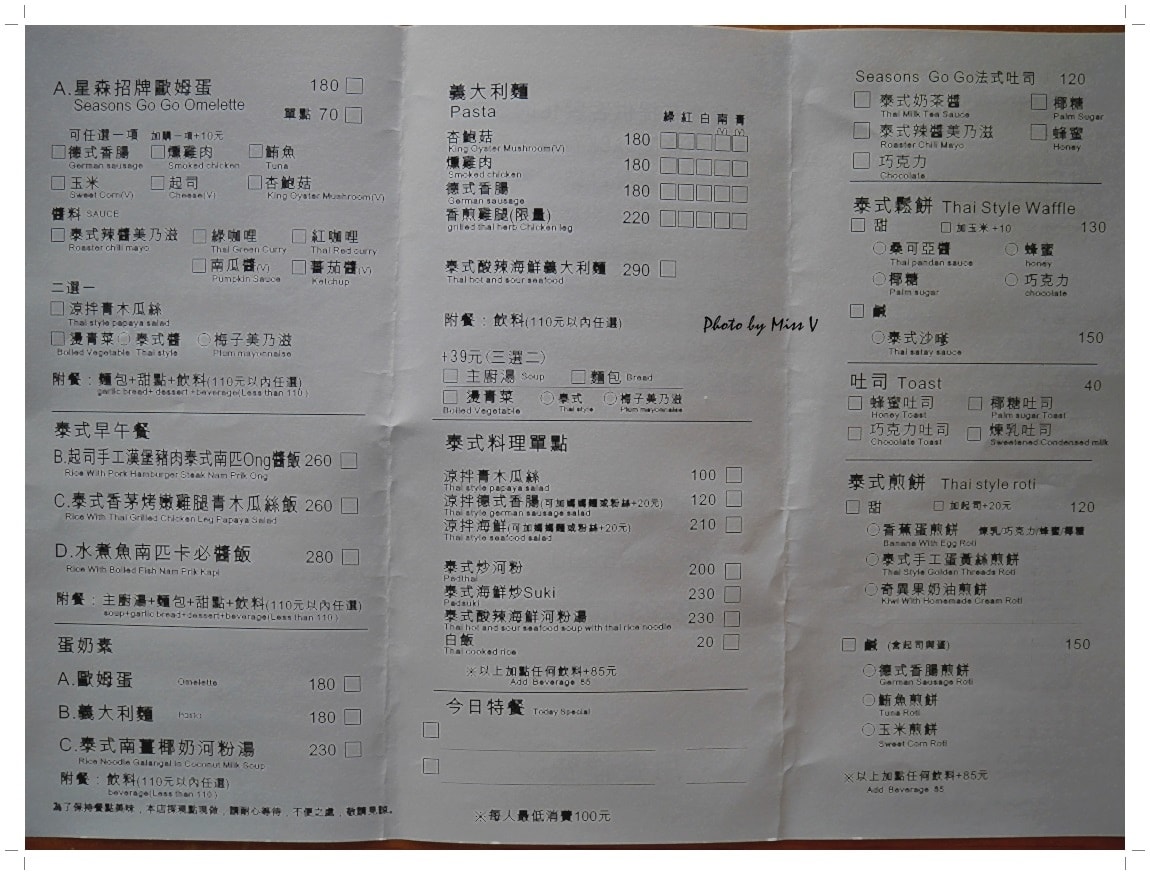 A.星森招牌歐姆蛋 180
Seasons Go Go Omelette
單點 70
可任選一項 加購一項+10元
德式香腸 燻雞肉 鮪魚
German sausage Smoked chicken Tuna
玉米 起司 杏鮑菇
Sweet Corn(V) Cheese(V) King Oyster Mushroom(V)
醬料 SAUCE
泰式辣醬美乃滋 綠咖哩 紅咖哩
Roaster chili mayo Thai Green Curry Thai Red curry
南瓜醬(V) 蕃茄醬(V)
Pumpkin Sauce Ketchup
二選一
涼拌青木瓜絲
Thai style papaya salad
燙青菜 泰式醬 梅子美乃滋
Boiled Vegetable Thai style Plum mayonnaise
附餐：麵包+甜點+飲料(110元以內任選)
garlic bread+ dessert +beverage(Less than 110 )
泰式早午餐
B.起司手工漢堡豬肉泰式南匹Ong醬飯 260
Rice With Pork Hamburger Steak Nam Prik Ong
C.泰式香茅烤嫩雞腿青木瓜絲飯 260
Rice With Thai Grilled Chicken Leg Papaya Salad
D.水煮魚南匹卡必醬飯 280
Rice With Boiled Fish Nam Prik Kapi
附餐：主廚湯+麵包+甜點+飲料(110元以內任選)
soup+garlic bread+dessert+beverage(Less than 110 )
蛋奶素
A.歐姆蛋 Omelette 180
B.義大利麵 pasta 180
C.泰式南薑椰奶河粉湯 230
Rice Noodle Galangal in Coconut Milk Soup
附餐：飲料(110元以內任選)
beverage(Less than 110 )
為了保持餐點美味，本店採現點現做，請耐心等待，不便之處，敬請見諒。
義大利麵
Pasta
綠 紅 白 南 青
(V) (V)
杏鮑菇 180
King Oyster Mushroom(V)
燻雞肉 180
Smoked chicken
德式香腸 180
German sausage
香煎雞腿(限量) 220
grilled thai herb Chicken leg
泰式酸辣海鮮義大利麵 290
Thai hot and sour seafood
附餐：飲料(110元以內任選)
Photo by Miss V
+39元(三選二)
主廚湯 Soup 麵包 Bread
燙青菜 泰式 梅子美乃滋
Boiled Vegetable Thai style Plum mayonnaise
泰式料理單點
涼拌青木瓜絲 100
Thai style papaya salad
涼拌德式香腸(可加媽媽麵或粉絲+20元) 120
Thai style german sausage salad
涼拌海鮮(可加媽媽麵或粉絲+20元) 210
Thai style seafood salad
泰式炒河粉 200
Padthai
泰式海鮮炒Suki 230
Padsuki
泰式酸辣海鮮河粉湯 230
Thai hot and sour seafood soup with thai rice noodle
白飯 20
Thai cooked rice
※以上加點任何飲料+85元
Add Beverage 85
今日特餐 Today Special
※每人最低消費100元
Seasons Go Go法式吐司 120
泰式奶茶醬 椰糖
Thai Milk Tea Sauce Palm Sugar
泰式辣醬美乃滋 蜂蜜
Roaster Chili Mayo Honey
巧克力
Chocolate
泰式鬆餅 Thai Style Waffle
甜 加玉米+10 130
桑可亞醬 蜂蜜
Thai pandan sauce honey
椰糖 巧克力
Palm sugar chocolate
鹹
泰式沙嗲 150
Thai satay sauce
吐司 Toast 40
蜂蜜吐司 椰糖吐司
Honey Toast Palm sugar Toast
巧克力吐司 煉乳吐司
Chocolate Toast Sweetened Condensed milk
泰式煎餅 Thai style roti
甜 加起司+20元 120
香蕉蛋煎餅 煉乳/巧克力/蜂蜜/椰糖
Banana With Egg Roti
泰式手工蛋黃絲煎餅
Thai Style Golden Threads Roti
奇異果奶油煎餅
Kiwi With Homemade Cream Roti
鹹 (含起司與蛋) 150
德式香腸煎餅
German Sausage Roti
鮪魚煎餅
Tuna Roti
玉米煎餅
Sweet Corn Roti
※以上加點任何飲料+85元
Add Beverage 85